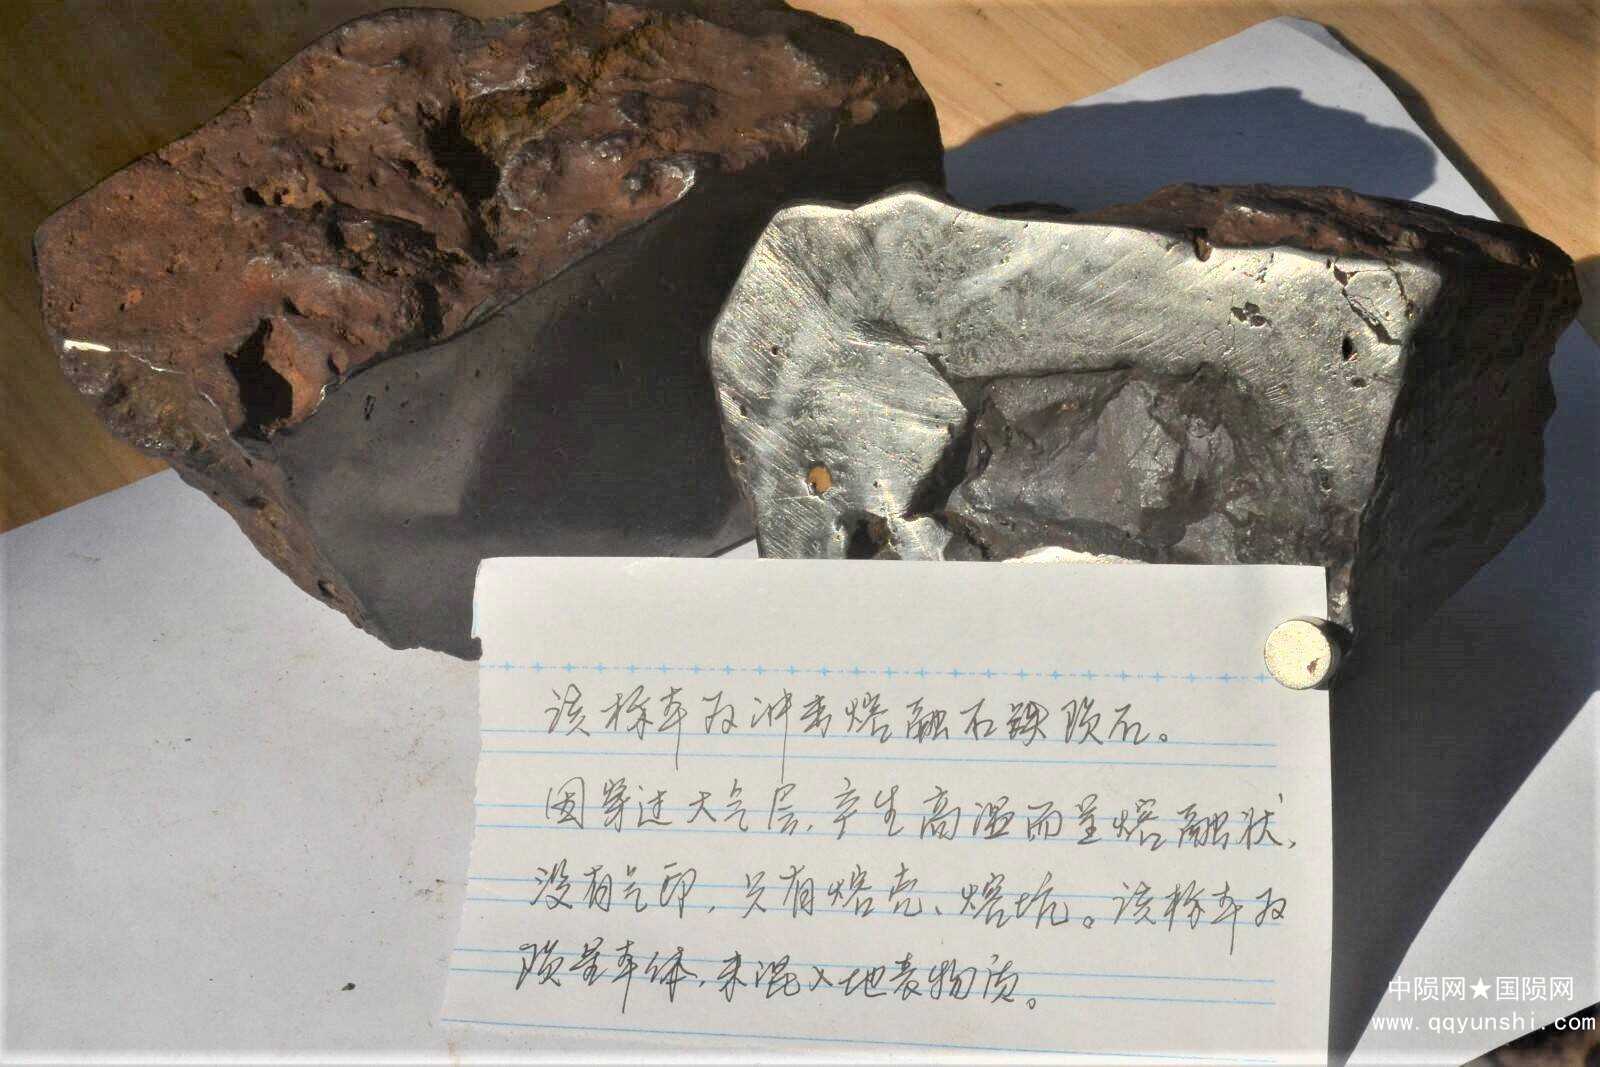 该标本为冲击熔融石铁陨石。
因穿过大气层,产生高温而呈熔融状,
没有气印,只有熔壳、熔坑。该标本为
陨星本体,未混入地表物质。
中陨网★国陨网
www.qqyunshi.com